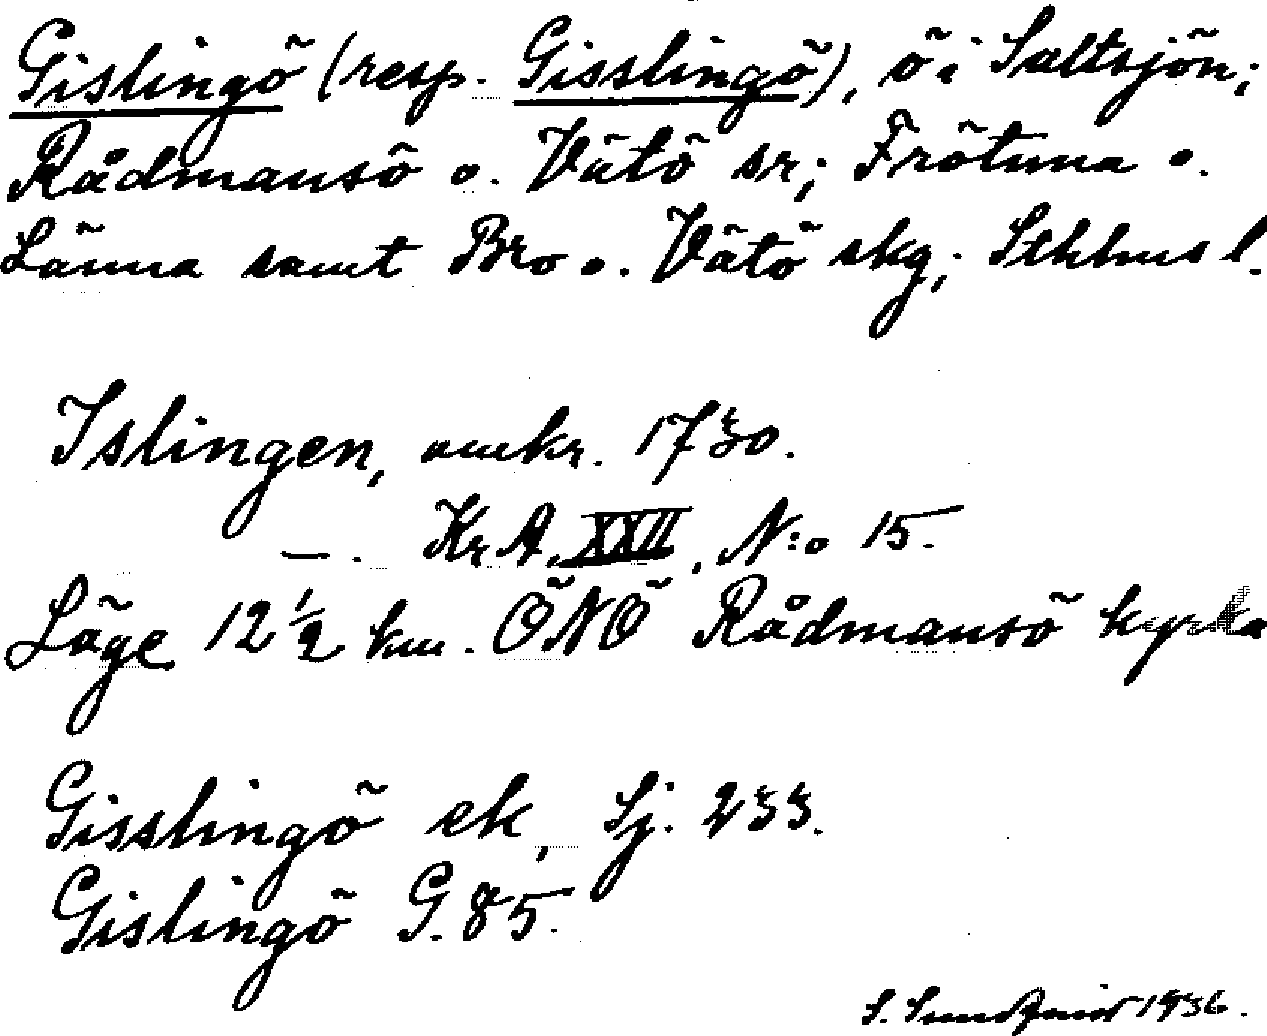 Gislingö (resp. Gisslingö), ö i Saltsjön;
Rådmansö o. Vätö sr; Frötuna o.
Länna samt Bro o. Vätö skg; Sthlms l.
Islingen, omkr. 1730.
—. Kr A. XXII, N:o 15.
Läge 12 1/2 km. ÖNÖ Rådmansö kyrka
Gisslingö ek, Sj. 233.
Gislingö G. 85.
S. 1936.